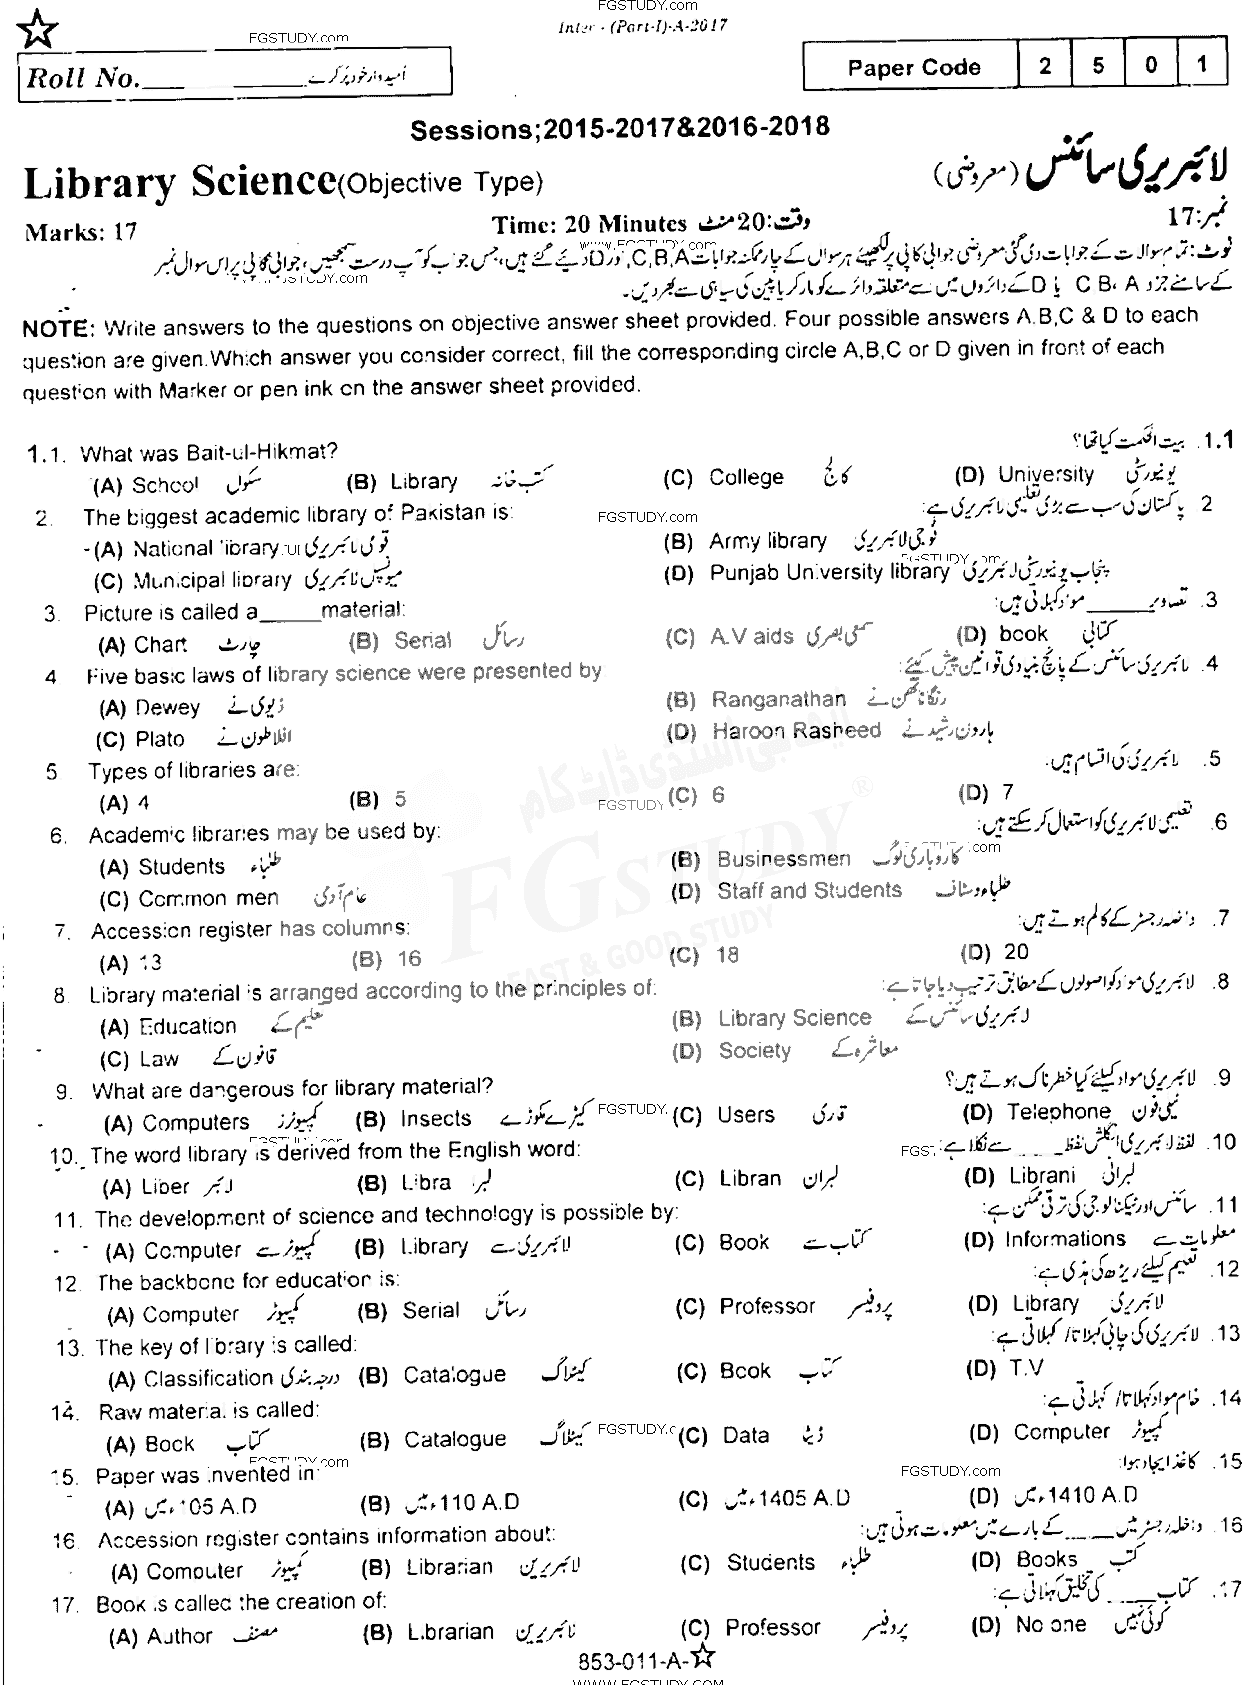 FGSTUDY.com
Inter - (Part-I)-A-2017
FGSTUDY.com
Roll No. امیدوار خود پُر کرے
Paper Code 2 5 0 1
Sessions;2015-2017&2016-2018
Library Science(Objective Type) لائبریری سائنس (معروضی)
Marks: 17 Time: 20 Minutes وقت:20 منٹ نمبر:17
نوٹ: تمام سوالات کے جوابات دی گئی معروضی جوابی کاپی پر لکھیئے ہر سوال کے چار ممکنہ جوابات C,B,A اور D دیئے گئے ہیں، جس جواب کو آپ درست سمجھیں، جوابی کاپی پر اس سوال نمبر
کے سامنے جزو C B، A یا D کے دائروں میں سے متعلقہ دائرے کو مارکر یا پین کی سیاہی سے بھر دیں۔
NOTE: Write answers to the questions on objective answer sheet provided. Four possible answers A.B,C & D to each
question are given.Which answer you consider correct, fill the corresponding circle A,B,C or D given in front of each
question with Marker or pen ink on the answer sheet provided.
1.1. What was Bait-ul-Hikmat? 1.1. بیت الحکمت کیا تھا؟
(A) School سکول (B) Library کتب خانہ (C) College کالج (D) University یونیورسٹی
2. The biggest academic library of Pakistan is: 2 پاکستان کی سب سے بڑی تعلیمی لائبریری ہے:
FGSTUDY.com
(A) National library قومی لائبریری (B) Army library فوجی لائبریری
(C) Municipal library میونسپل لائبریری (D) Punjab University library پنجاب یونیورسٹی لائبریری
3. Picture is called a_____material: 3. تصاویر _____ مواد کہلاتی ہیں:
(A) Chart چارٹ (B) Serial رسائل (C) A.V aids سمعی بصری (D) book کتابی
4 Five basic laws of library science were presented by 4. لائبریری سائنس کے پانچ بنیادی قوانین پیش کیئے:
(A) Dewey ڈیوی نے (B) Ranganathan رنگاناتھن نے
(C) Plato افلاطون نے (D) Haroon Rasheed ہارون رشید نے
5 Types of libraries are: 5. لائبریری کی اقسام ہیں.
(A) 4 (B) 5 FGSTUDY (C) 6 (D) 7
6. Academic libraries may be used by: 6. تعلیمی لائبریری کو استعمال کر سکتے ہیں:
(A) Students طلباء (B) Businessmen کاروباری لوگ
(C) Common men عام آدمی (D) Staff and Students طلباء و سٹاف
7. Accession register has columns: 7. داخلہ رجسٹر کے کالم ہوتے ہیں:
(A) 13 (B) 16 (C) 18 (D) 20
8. Library material is arranged according to the principles of: 8. لائبریری مواد کو اصولوں کے مطابق ترتیب دیا جاتا ہے:
(A) Education تعلیم کے (B) Library Science لائبریری سائنس کے
(C) Law قانون کے (D) Society معاشرہ کے
9. What are dangerous for library material? 9. لائبریری مواد کیلئے کیا خطرناک ہوتے ہیں؟
(A) Computers کمپیوٹرز (B) Insects کیڑے مکوڑے FGSTUDY. (C) Users قاری (D) Telephone ٹیلی فون
10. The word library is derived from the English word: 10. لفظ لائبریری انگلش لفظ ____ سے نکلا ہے:
(A) Liber لبر (B) Libra لبر (C) Libran لبران (D) Librani لبرانی
11. The development of science and technology is possible by: 11. سائنس اور ٹیکنالوجی کی ترقی ممکن ہے:
(A) Computer کمپیوٹر سے (B) Library لائبریری سے (C) Book کتاب سے (D) Informations معلومات سے
12. The backbone for education is: 12. تعلیم کیلئے ریڑھ کی ہڈی ہے:
(A) Computer کمپیوٹر (B) Serial رسائل (C) Professor پروفیسر (D) Library لائبریری
13. The key of library is called: 13. لائبریری کی چابی کہلاتا/ کہلاتی ہے:
(A) Classification درجہ بندی (B) Catalogue کیٹلاگ (C) Book کتاب (D) T.V
14. Raw material is called: 14. خام مواد کہلاتا/ کہلاتی ہے:
(A) Book کتاب (B) Catalogue کیٹلاگ FGSTUDY.c (C) Data ڈیٹا (D) Computer کمپیوٹر
15. Paper was invented in 15. کاغذ ایجاد ہوا:
FGSTUDY.com
(A) 105 A.D میں (B) 110 A.D میں (C) 1405 A.D میں (D) 1410 A.D میں
16. Accession register contains information about: 16. داخلہ رجسٹر میں ____ کے بارے میں معلومات ہوتی ہیں:
(A) Computer کمپیوٹر (B) Librarian لائبریرین (C) Students طلباء (D) Books کتب
17. Book is called the creation of: 17. کتاب ____ کی تخلیق کہلاتی ہے:
(A) Author مصنف (B) Librarian لائبریرین (C) Professor پروفیسر (D) No one کوئی نہیں
853-011-A-
WWW.FGSTUDY.COM
ایف جی سٹڈی ڈاٹ کام
FGSTUDY®
FAST & GOOD STUDY